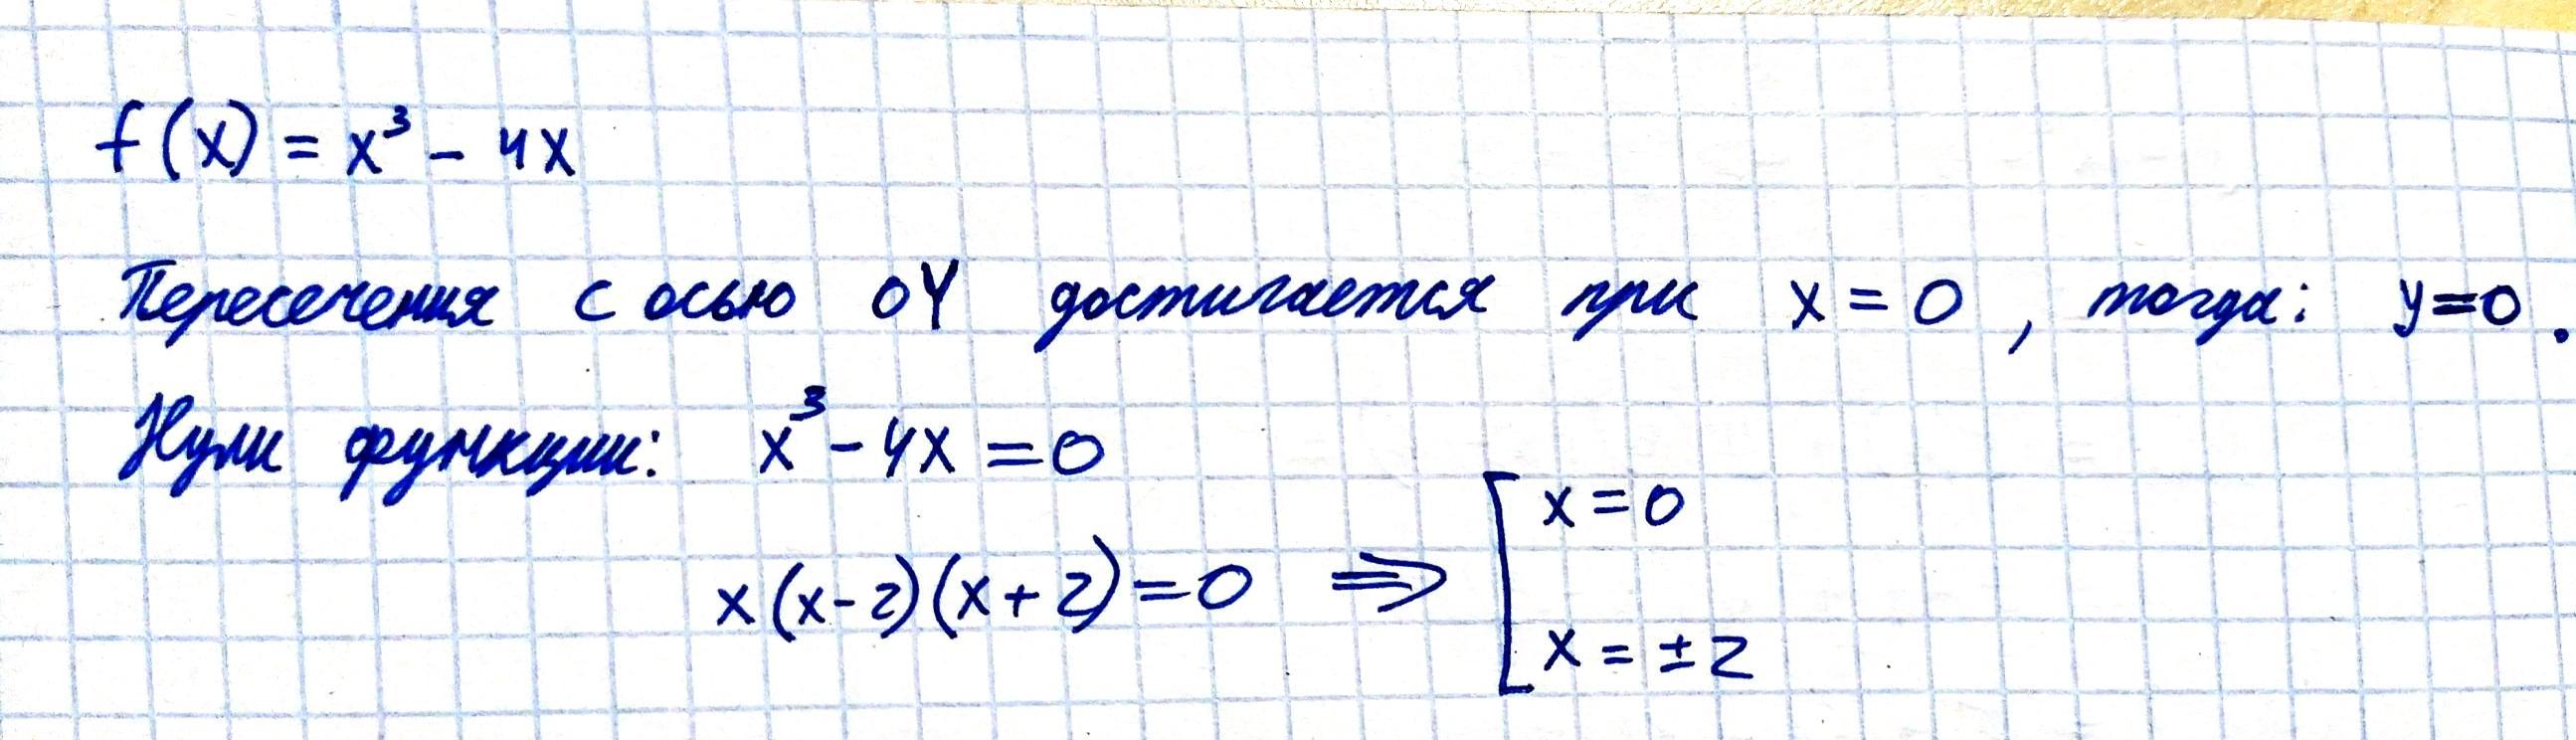 f(x) = x³ - 4x
Пересечения с осью OY достигается при x = 0, тогда: y=0.
Нули функции: x³ - 4x = 0
x(x-2)(x+2)=0 ⇒ [ x = 0
x = ±2